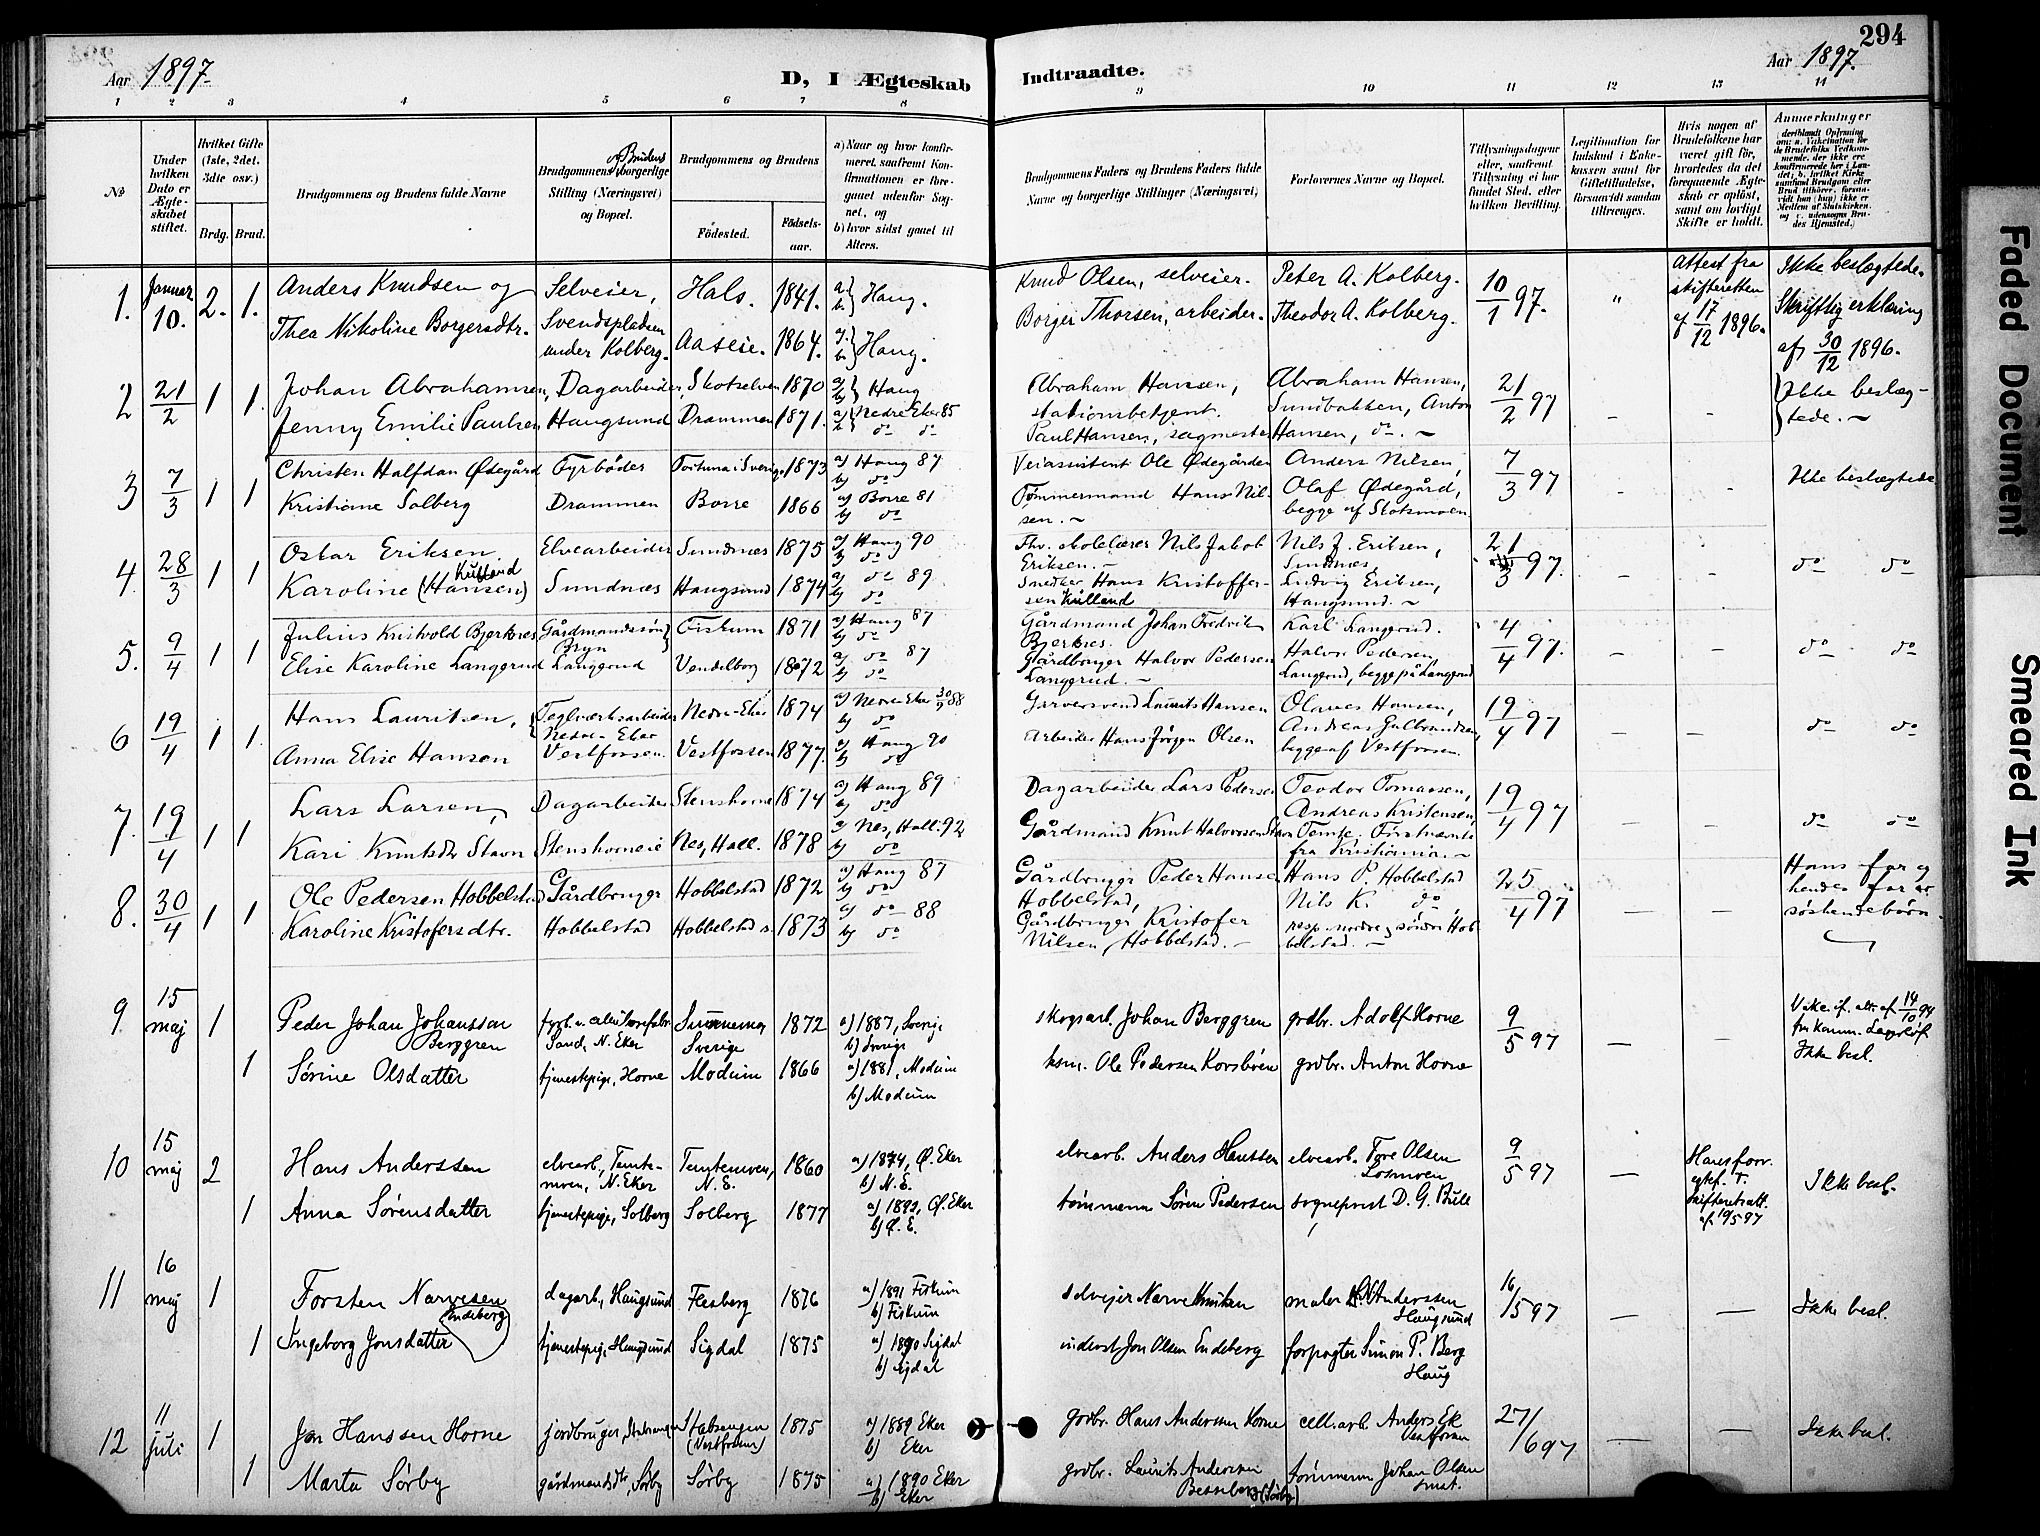 294
Aar 1897.
D, I Ægteskab Indtraadte.
Aar 1897.
1 2 3 4 5 6 7 8 9 10 11 12 13 14
№
Under hvilken Dato er Ægteskabet stiftet.
Hvilket Gifte (1ste, 2det, 3die osv.)
Brdg. Brud.
Brudgommens og Brudens fulde Navne
Brudgommens og Brudens borgerlige Stilling (Næringsvei) og Bopæl.
Brudgommens og Brudens
Fødested.
Fødselsaar.
a) Naar og hvor konfirmeret, saafremt Konfirmationen er foregaaet udenfor Sognet, og
b) hvor sidst gaaet til Alters.
Brudgommens Faders og Brudens Faders fulde Navne og borgerlige Stillinger (Næringsvei)
Forlovernes Navne og Bopæl.
Tillysningsdagene eller, saafremt Tillysning ei har fundet Sted, efter hvilken Bevilling.
Legitimation for Indskud i Enkekassen samt for Giftetilladelse, forsaavidt saadan tiltrænges.
Hvis nogen af Brudefolkene har været gift før, hvorledes da det foregaaende Ægteskab er opløst, samt om lovligt Skifte er holdt.
Anmerkninger
1. Januar 10. 2. 1. Anders Knudsen og Selveier, Hals. 1841. a) b) Haug. Knud Olsen, selveier. Peter A. Kolberg. 10/1 97. " Attest fra skifteretten af 17/12 1896. Ikke beslægtede.
Thea Nikoline Borgersdtr. Svendspladsen under Kolberg. Aaseie. 1864. a) b) Haug. Borger Thorsen, arbeider. Theodor A. Kolberg. Skriftlig erklæring af 30/12 1896.
2 21/2 1 1. Johan Abrahamsen, Dagarbeider, Skotselven 1870 a) b) Haug Abraham Hansen, stationsbetjent. Abraham Hansen, Sundbakken, Anton 21/2 97 - - Ikke beslægtede. -
Jenny Emilie Paulsen Haugsund Drammen 1871. a) Nedre Eker 85 b) do do Paul Hansen, sagmester Hansen, do. -
3 7/3 1 1 Christen Halfdan Ødegård Fyrbøder Fortuna i Sverige 1873 a) Haug 87 b) do Veiassistent Ole Ødegården Anders Nilsen, 7/3 97 Ikke beslægtede
Kristiane Solberg Drammen Borre 1866 a) Borre 81 b) do Tømmermand Hans Nilsen. - Olaf Ødegård, begge af
4. 28/3 1 1 Oskar Eriksen. Elvearbeider Sundnæs 1875 a) Haug 90 b) do Fhv. skolelærer Nils Jakob Eriksen. - Nils J. Eriksen, Sundnæs, 21/3 97. - - do do
Karoline (Hansen) Sundnæs Haugsund 1874 a) do 89 b) do Snedker Hans Kristoffersen Ludvig Eriksen, Haugsund. -
5. 9/4 1 1 Julius Bjerknes Gårdmandssøn Bryn Fiskum 1871 a) Haug 87 b) do Gårdmand Johan Fredrik Bjerknes. Karl Langerud. 4/4 97. - - do do
Elise Karoline Langerud Langerud Vendelborg 1872 a) do 87 b) do Gårdbruger Halvor Pedersen Langerud. - Halvor Pedersen Langerud, begge på Langerud
6 19/4 1 1. Hans Lauritsen, Teglværksarbeider Nedre-Eker Nedre-Eker 1874 a) Nedre Eker 88 b) do Garversvend Laurits Hansen Olaves Hansen, 19/4 97 - - do do
Anna Elise Hansen Vestfossen. Vestfossen 1877. a) Haug 90 b) do Arbeider Hans Jørgen Olsen Andreas Gulbrandsen, begge af Vestfossen.
7. 19/4 1 1 Lars Larsen, Dagarbeider Stenshorne 1874 a) Haug 89 b) do Dagarbeider Lars Pedersen Teodor Tomassen, 19/4 97 - - do do
Kari Knutsdtr Stavn Stenshorneie Nes, Hall. 1878 a) Nes, Hall. 92 b) do Gårdmand Knut Halvorsen Stavn Andreas Kristensen, Temte. Førstnævnte fra Kristiania. -
8. 30/4 1 1 Ole Pedersen Hobbelstad Gårdbruger Hobbelstad 1872 a) Haug 87 b) do Gårdbruger Peder Hansen Hobbelstad, Hans P. Hobbelstad 25/4 97 - - Hans far og hendes far er søskendebørn.
Karoline Kristofersdtr. Hobbelstad Hobbelstad s. 1873 a) do 88 b) do Gårdbruger Kristofer Nilsen, Hobbelstad. - Nils K. do, resp. nordre og søndre Hobbelstad. -
9. 15 maj 1 Peder Johan Johansson Berggren Sand, N. Eker Sverige 1872 a) 1887, Sverige b) Sverige skogsarb. Johan Berggren grdbr. Adolf Horne 9/5 97 - - Ikke besl.
1 Sørine Olsdatter tjenestepige, Horne Modum 1866 a) 1881, Modum b) Modum hsm. Ole Pedersen Korsbøen grdbr. Anton Horne
10 15 maj 2 Hans Anderssen elvearb., Temtemoen, N. Eker Temtemoen, N. E. 1860 a) 1874, Ø. Eker b) N. E. elvearb. Anders Hanssen elvearb. Tore Olsen 9/5 97 - Hans forr. skifteretsatt. af 10/5 97 Ikke besl.
1 Anna Sørensdatter tjenestepige, Solberg Solberg 1877 a) 1892, Ø. Eker b) Ø. E. tømmerm Søren Pedersen sogneprest D. G. Bull
11 16 maj 1 Torsten Narvesen dagarb., Haugsund Flesberg 1876 a) 1891 Fiskum b) Fiskum selvejer Narve Knutsen maler Anderssen Haugsund 16/5 97 - - Ikke besl.
1 Ingeborg Jonsdatter Endeberg tjenestepig., Haugsund Sigdal 1875 a) 1890 Sigdal b) Sigdal inderst Jon Olsen Endeberg forpagter Simon P. Berg Haug
12 11 juli 1 Jon Hanssen Horne jordbruger, Stabsengen (Vestfossen) 1875 a) 1889 Eker b) Eker grdbr. Hans Anderssen Horne cell.arb. Anders Ek Vestfossen 27/6 97 - - Ikke besl.
1 Marta Sørby gårdmandsdtr, Sørby Sørby 1875 a) 1890 Eker b) Eker grdbr. Laurits Anderssen Besseberg (Sørby) tømmerm Johan Olsen
Faded Document
Smeared Ink